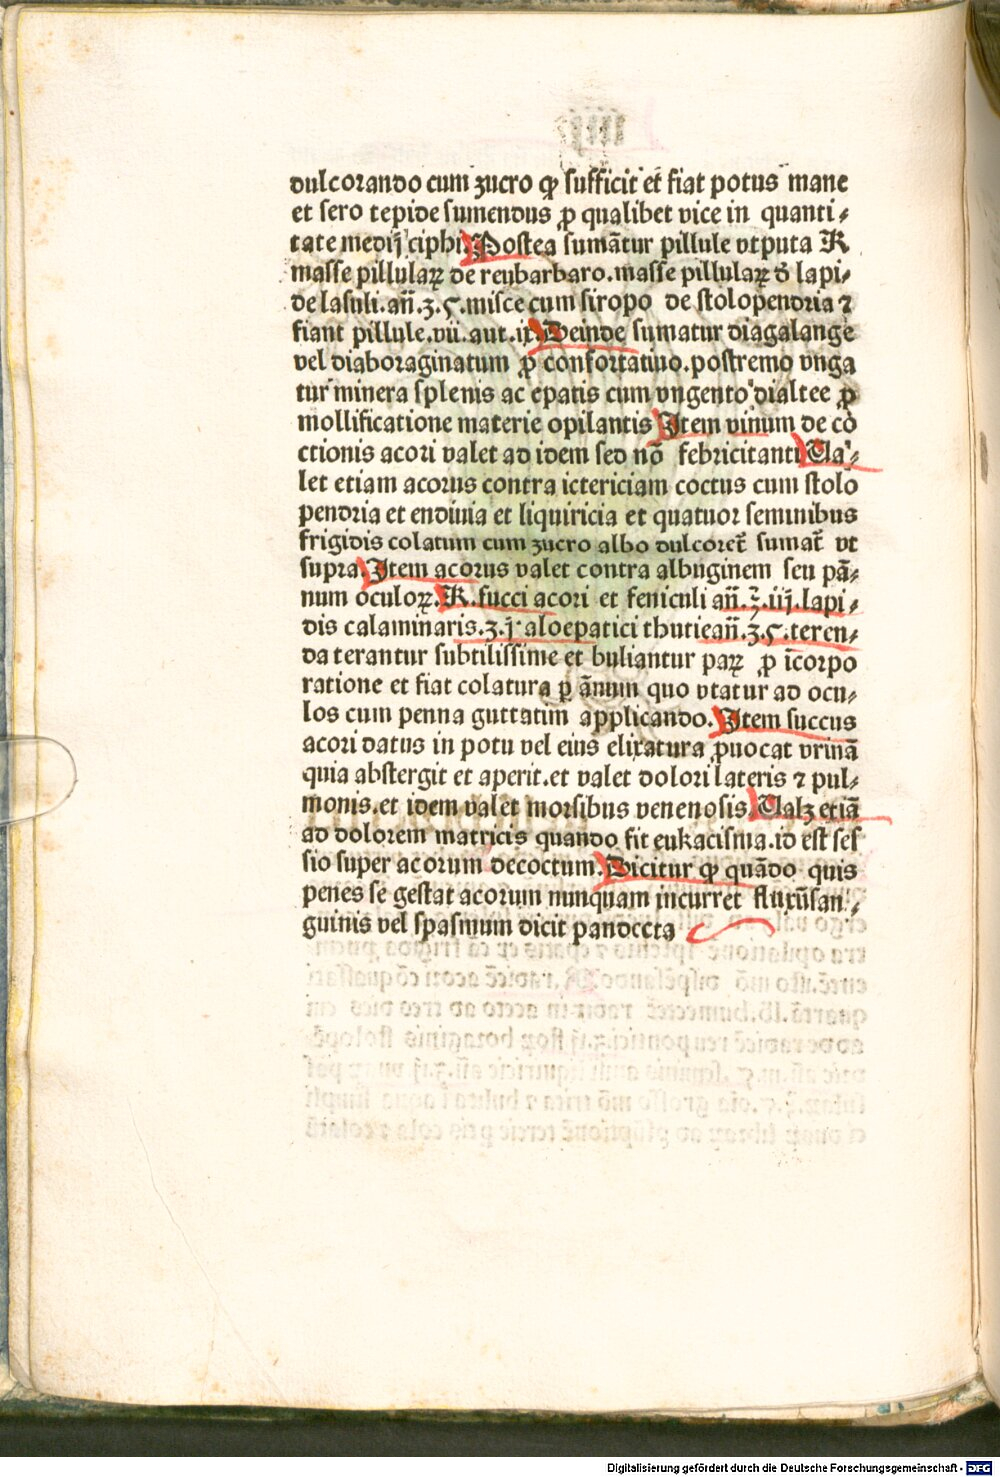 dulcorando cum zucro ꝙ sufficit et fiat potus mane
et sero tepide sumendus ꝑ qualibet vice in quanti⸗
tate medij ciphi. Postea sumātur pillule vtputa ℞
masse pillulaꝝ de reubarbaro. masse pillulaꝝ d̄ lapi⸗
de lasuli. an̄. ʒ. ς. misce cum siropo de stolopendria ⁊
fiant pillule. vii. aut. ix. Deinde sumatur diagalange
vel diaboraginatum ꝓ confortatiuo. postremo vnga
tur minera splenis ac epatis cum vngento dialtee ꝓ
mollificatione materie opilantis Item vinum de co
ctionis acori valet ad idem sed nō febricitanti Va⸗
let etiam acorus contra ictericiam coctus cum stolo
pendria et endiuia et liquiricia et quatuor seminibus
frigidis colatum cum zucro albo dulcoret̄ sumat̄ vt
supra. Item acorus valet contra albuginem seu pā⸗
num oculoꝝ. ℞. succi acori et feniculi an̄. ℥. iij. lapi⸗
dis calaminaris. ʒ. j. aloepatici thutie an̄. ʒ. ς. teren⸗
da terantur subtilissime et buliantur paꝝ ꝓ īcorpo
ratione et fiat colatura ꝑ ānum quo vtatur ad ocu⸗
los cum penna guttatim applicando. Item succus
acori datus in potu vel eius elixatura ꝓuocat vrinā
quia abstergit et aperit. et valet dolori lateris ⁊ pul⸗
monis. et idem valet morsibus venenosis. Valꝫ etiā
ad dolorem matricis quando fit eukacisma. id est ses
sio super acorum decoctum. Dicitur ꝙ quādo quis
penes se gestat acorum nunquam incurret fluxū san⸗
guinis vel spasmum dicit pandecta
Digitalisierung gefördert durch die Deutsche Forschungsgemeinschaft - DFG